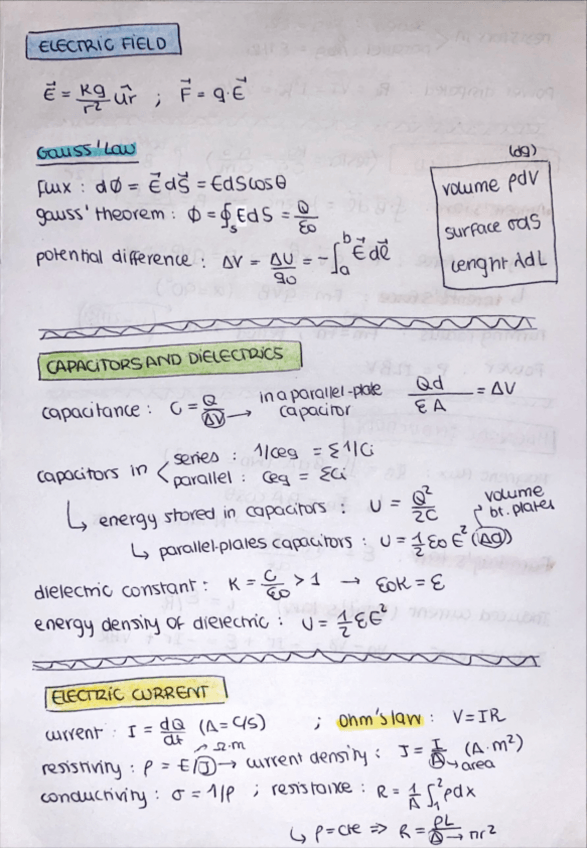 ELECTRIC FIELD
E⃗ = kq/r² û_r ; F⃗ = q·E⃗
Gauss' Law
Flux : dΦ = E⃗ dS⃗ = EdS cosθ
gauss' theorem : Φ = ∮_S E dS = Q/ε0
potential difference : ΔV = ΔU/q0 = -∫_a^b E⃗ dℓ⃗
(dq)
volume ρdV
surface σdS
lenght λdL
CAPACITORS AND DIELECTRICS
capacitance : C = Q/ΔV → in a parallel-plate capacitor Qd/εA = ΔV
capacitors in < series : 1/Ceq = Σ1/Ci
parallel : Ceq = ΣCi
↳ energy stored in capacitors : U = Q²/2C
volume bt. plates
↳ parallel-plates capacitors : U = 1/2 ε0 E² (Ad)
dielectric constant : K = C/ε0 > 1 → ε0K = ε
energy density of dielectric : U = 1/2 εE²
ELECTRIC CURRENT
current : I = dQ/dt (A = C/s) ; Ohm's law : V = IR
Ω·m
resistivity : ρ = E/J → current density : J = I/A (A·m²)
area
conductivity : σ = 1/ρ ; resistance : R = 1/A ∫_1^2 ρdx
↳ ρ = cte => R = ρL/A → πr²